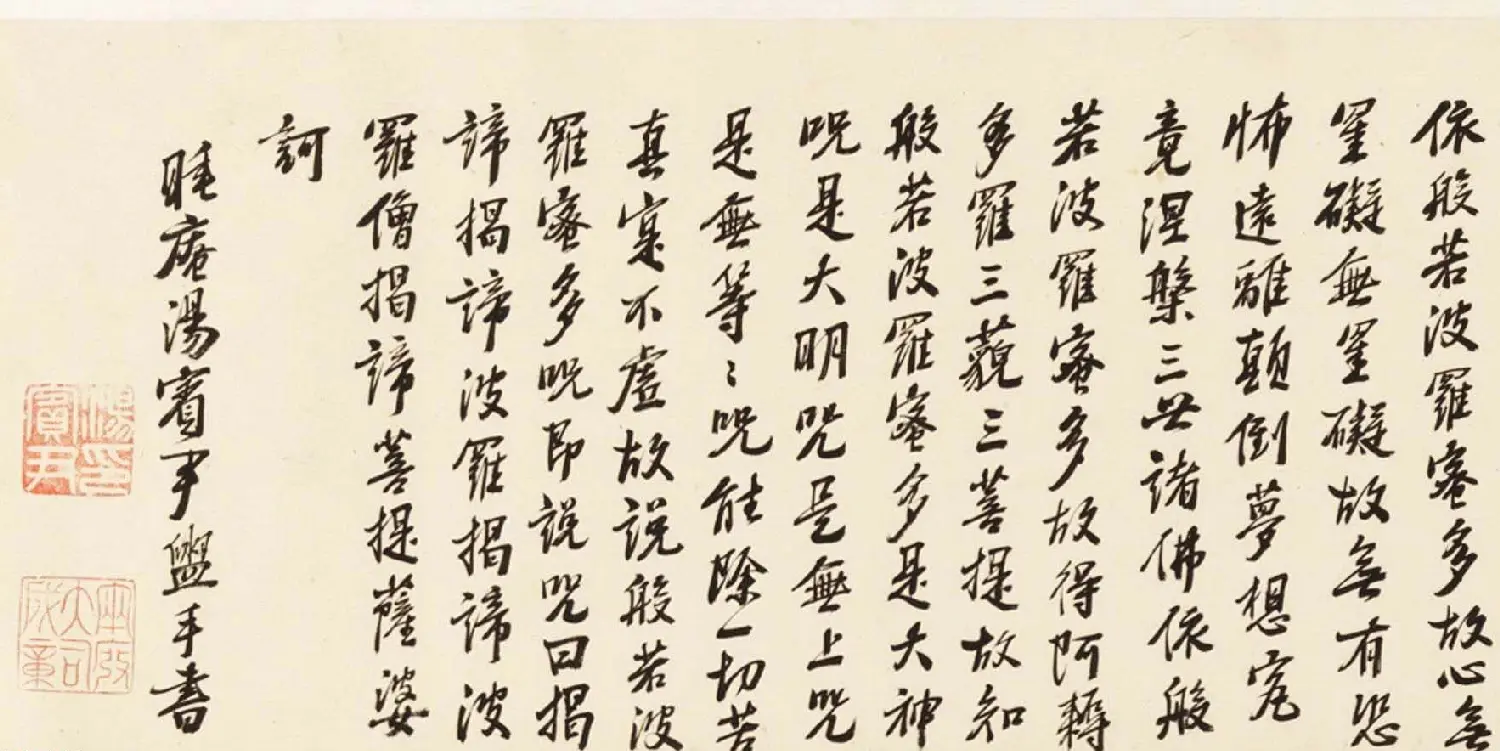 依般若波羅蜜多故心無
罣礙無罣礙故無有恐
怖遠離顛倒夢想究
竟涅槃三世諸佛依般
若波羅蜜多故得阿耨
多羅三藐三菩提故知
般若波羅蜜多是大神
呪是大明呪是無上呪
是無等〻呪能除一切苦
真寔不虛故說般若波
羅蜜多呪即說呪曰揭
諦揭諦波羅揭諦波
羅僧揭諦菩提薩婆
訶
睡庵湯賓尹盥手書
湯印賓尹
大司成章